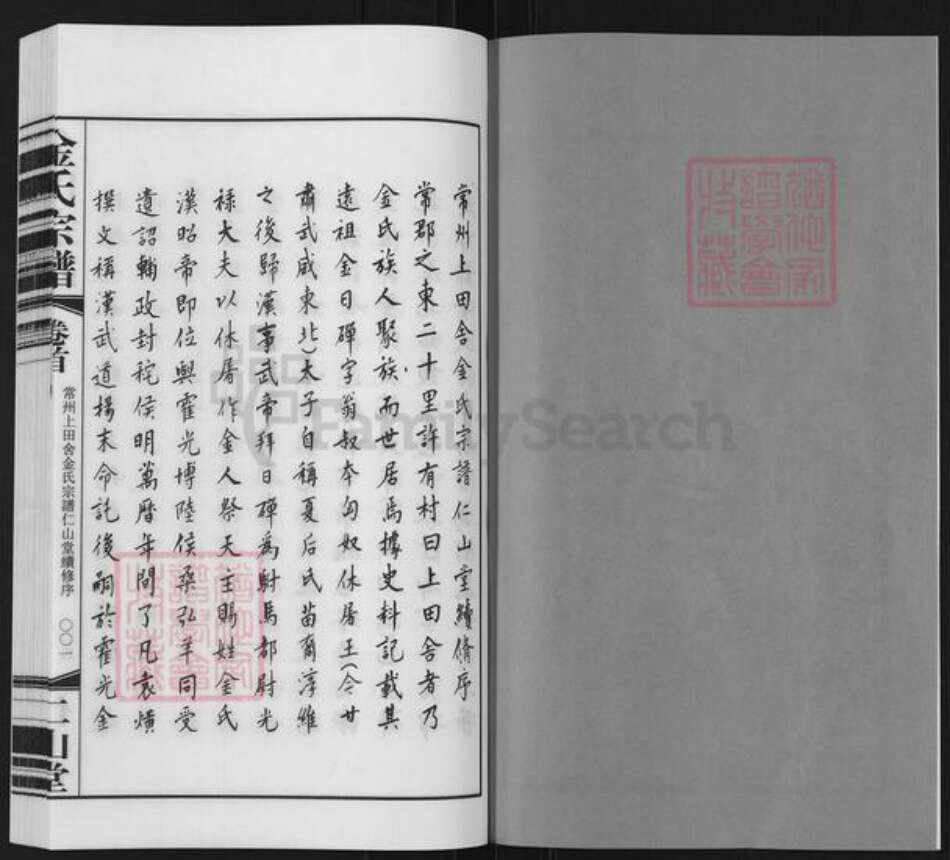 常州上田舍金氏宗譜仁山堂續脩序
常郡之東二十里許有村曰上田舍者乃
金氏族人聚族而世居焉據史料記載其
遠祖金日磾字翁叔本匈奴休屠王(今甘
肅武威東北)太子自稱夏后氏苗裔淳維
之後歸漢事武帝拜日磾為駙馬都尉光
祿大夫以休屠作金人祭天主賜姓金氏
漢昭帝即位與霍光博陸侯桑弘羊同受
遺詔輔政封秺侯明萬曆年間了凡袁黃
撰文稱漢武道揚末命託後嗣於霍光金
金氏宗譜
卷首
常州上田舍金氏宗譜仁山堂續修序
〇〇一
仁山堂
FamilySearch